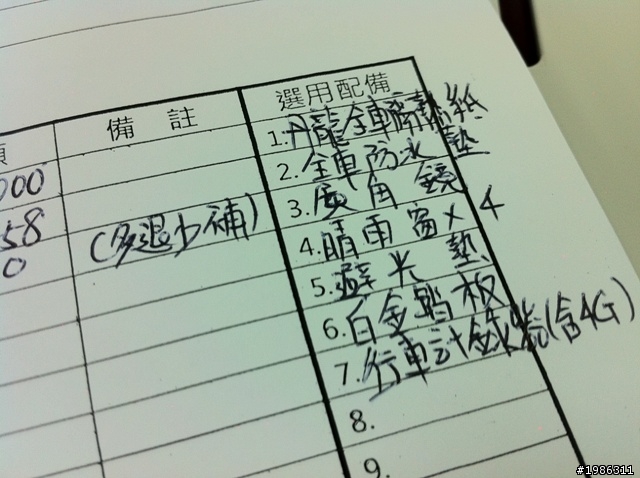 備 註
選用配備
1.丹龍全車隔熱紙
2.全車防水墊
000
3.廣角鏡
58
(多退少補)
4.晴雨窗×4
0
5.避光墊
6.白金踏板
7.行車計錄器(含4G)
8.
9.
#1986311